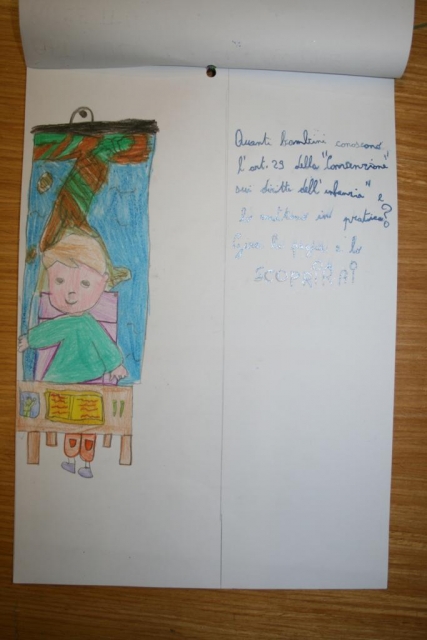 Quanti bambini conoscono
l'art. 29 della "Convenzione
sui diritti dell'infanzia" e
lo mettono in pratica?
Gira la pagina e lo
SCOPRIRAI